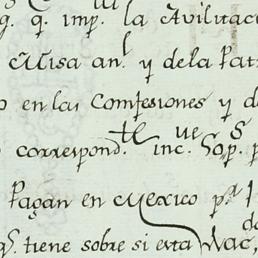 g. q. imp. la Avilitac
Missa an.l y de la Pat
o en las Comfesiones y d
correspond.te inc. Sop.
Pagan en Mexico p.a
q.e tiene sobre si esta Nac,